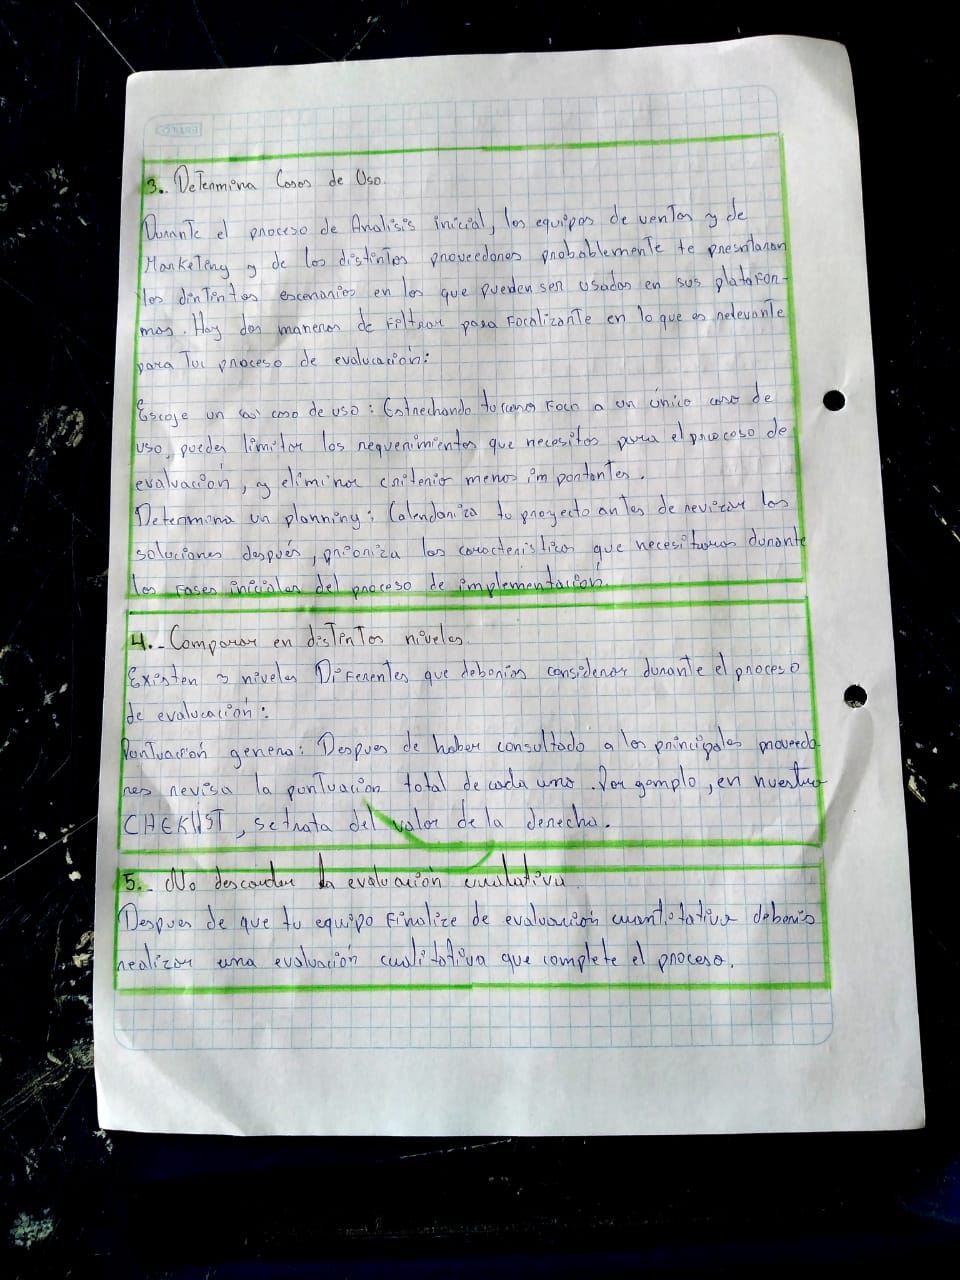 3.. Determina Casos de Uso.
Durante el proceso de Analisis inicial, los equipos de ventas y de
Marketing y de los distintos proveedores probablemente te presntaran
los dintintos escenarios en los que pueden ser usados en sus platafor-
mas. Hay dos maneras de Filtrar para Focalizarte en lo que es relevante
para Tu proceso de evalucación:
Escoje un caso de uso: Estrechando tu Foco a un único caso de
uso, puedes limitar los requerimientos que necesitas para el proceso de
evaluación, y eliminar criterio menos importantes.
Determina un planning: Calendariza tu proyecto antes de revizar las
soluciones después, prioriza las caracteristicas que necesitaras durante
las Fases iniciales del proceso de implementación.
4.- Comparar en distintos niveles.
Existen 3 niveles Diferentes que deberias considerar durante el proceso
de evalucación:
Puntuación genera: Despues de haber consultado a los principales proveedo-
res revisa la puntuación total de cada uno. Por gemplo, en nuestro
CHEKLIST, se trata del valor de la derecha.
5.- No descardar la evaluación cualativa.
Despues de que tu equipo Finalize de evaluación cuantitativa deberis
realizar una evaluación cualitativa que complete el proceso.